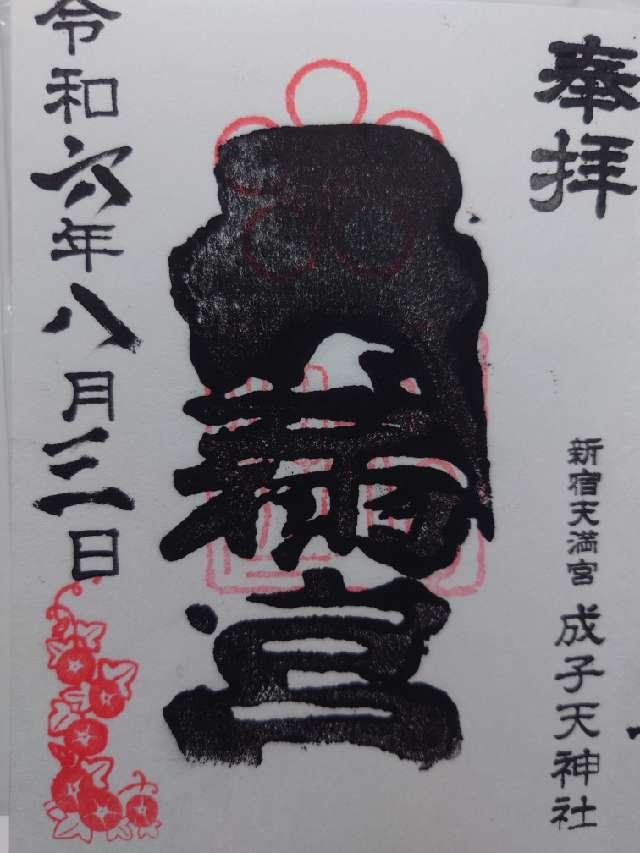 奉拝
新宿天満宮 成子天神社
満宮
令和六年八月三日